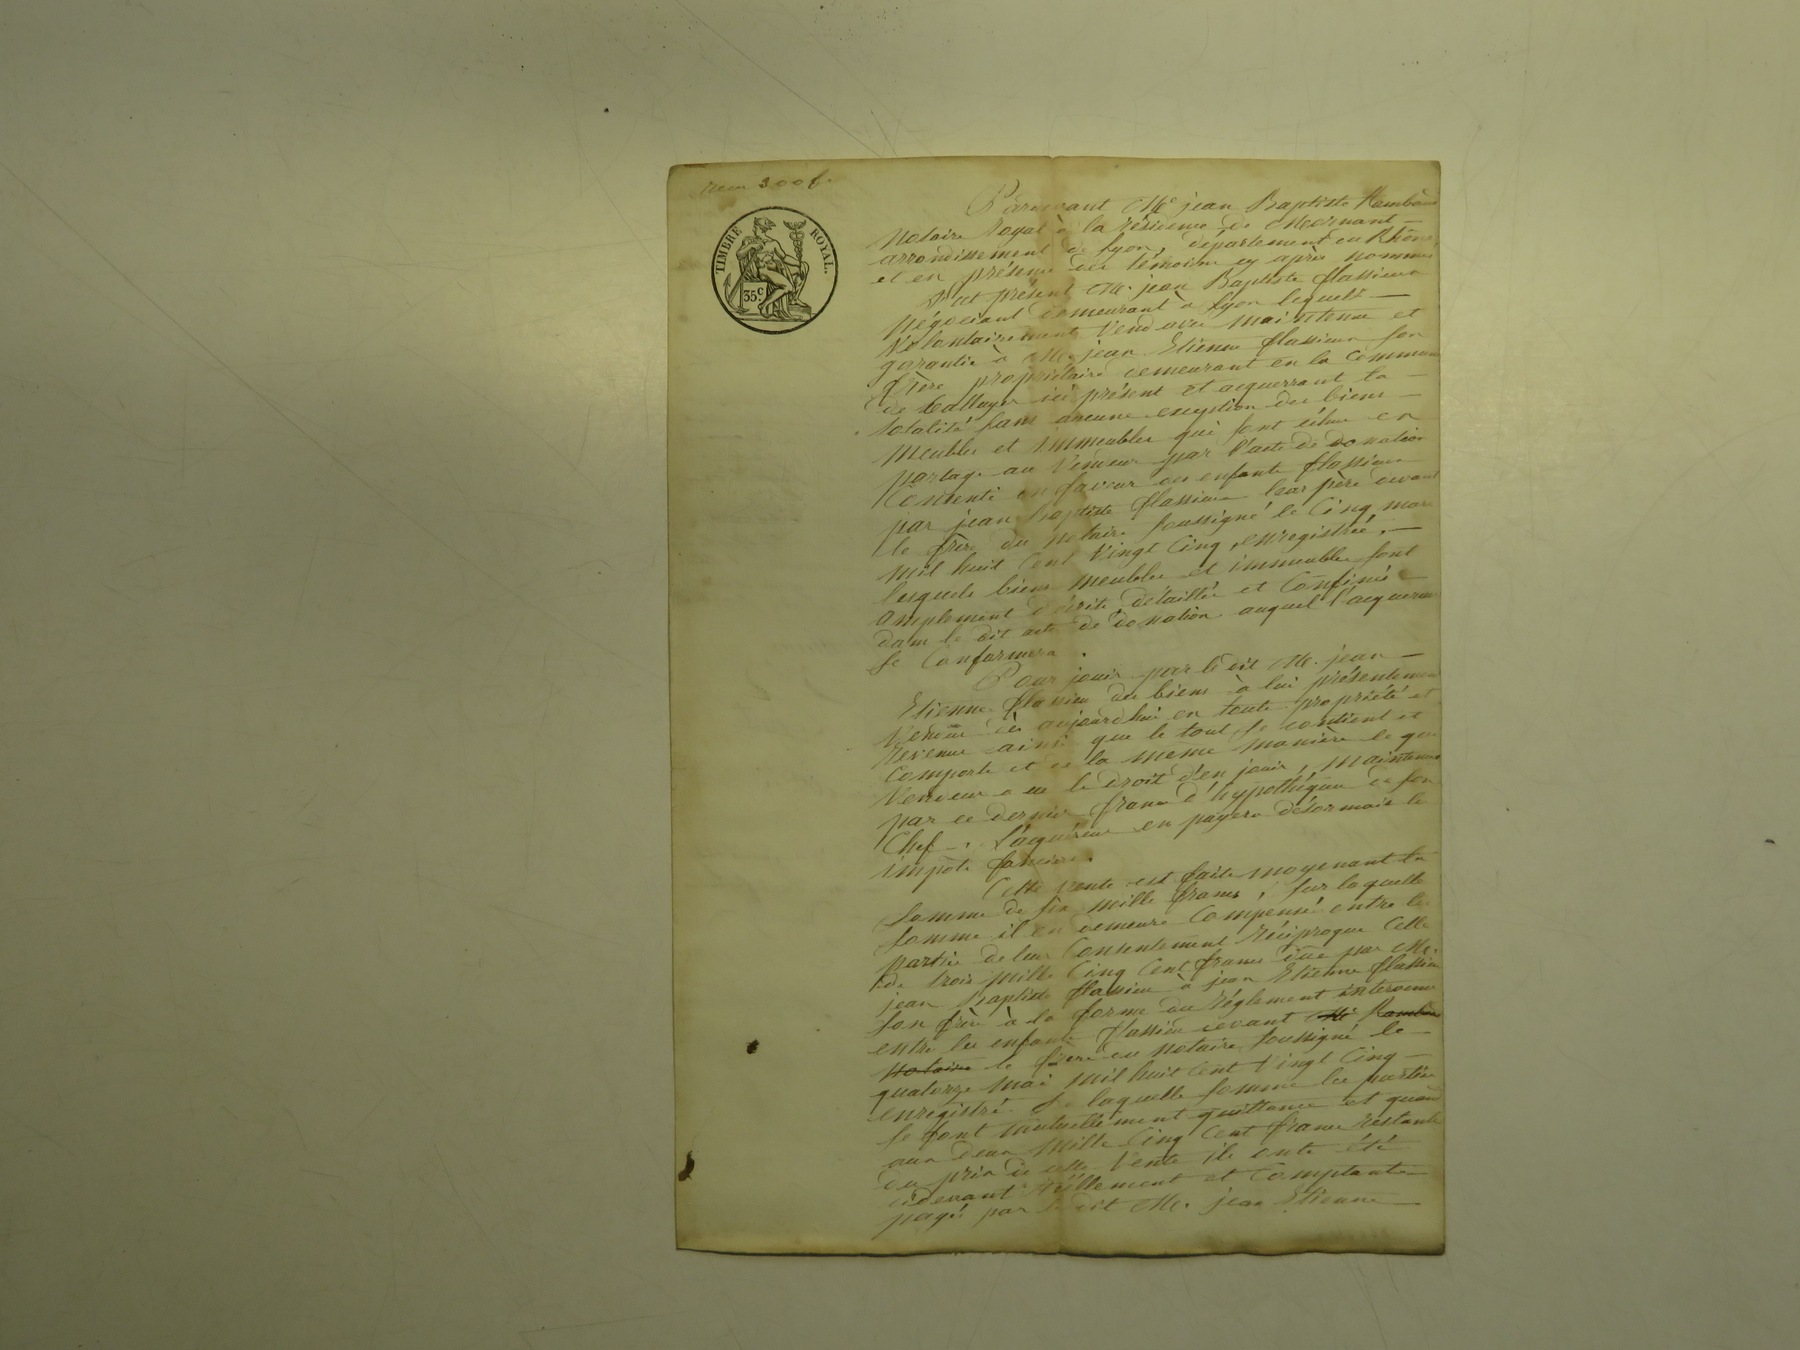 300 f.
TIMBRE ROYAL.
35 c.
Pardevant Me jean Baptiste Rambaud
Notaire Royal à la résidence de Mornant —
arrondissement de Lyon, département du Rhône,
et en présence des témoins cy après nommés
fut présent M. jean Baptiste flassieux
négociant demeurant à Lyon lequel —
Volontairement Vend avec maintenue et
garantie à M. jean Etienne flassieux son
frère propriétaire demeurant en la commune
de ici présent et acquerrant la —
totalité sans aucune exception des biens —
meubles et immeubles qui sont échus en
partage au Vendeur par l'acte de donation
Consenti en faveur des enfants flassieux
par jean Baptiste flassieux leur père devant
le frère du notaire soussigné le Cinq mars
mil huit Cent Vingt Cinq, enregistré, —
lesquels biens meubles et immeubles sont
amplement décrits détaillés et Confinés —
dans le dit acte de donation auquel l'acquéreur
se Conformera.
Pour jouir par le dit M. jean —
Etienne flassieu des biens à lui présentement
Vendus dès aujourdhui en toute propriété et
Revenus ainsi que le tout se contient et
Comporte et de la meme manière que le
Vendeur a eu le droit d'en jouir, maintenus
par ce dernier francs d'hypothéque de son
Chef —. L'acquéreur en payera désormais le
impôts fonciers.
Cette vente est faite moyenant la
somme de six mille francs, sur laquelle
somme il en demeure Compensé entre les
parties de leur Consentement réciproque Celle
de trois mille Cinq Cent francs due par M.
jean Baptiste flassieu à jean Etienne flassieu
son frère à la forme du réglement intervenu
entre les enfants flassieu devant Me Rambaud
Notaire le frère du notaire soussigné le —
quatorze mai mil huit cent Vingt Cinq —
enregistré. De laquelle somme les parties
se font mutuellement quittance et quant
aux deux mille Cinq Cent francs restants
du prix de cette Vente ils ont été
cidevant réellement et Comptant —
payés par le dit M. jean Etienne —